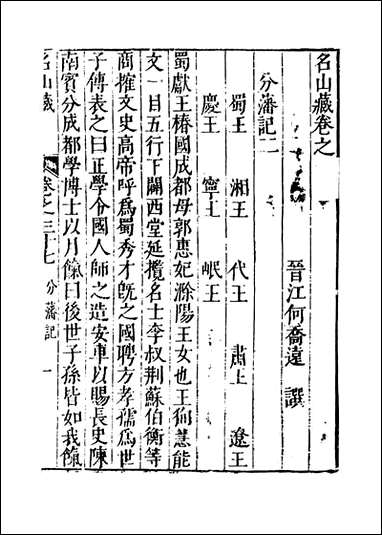 名山藏卷之
晉江何喬遠 譔
分藩記二
蜀王 湘王 代王 肅王 遼王
慶王 寧王 岷王
蜀獻王椿國成都母郭惠妃滁陽王女也王狥慧能
文一目五行下闢西堂延攬名士李叔荆蘇伯衡等
商搉文史高帝呼爲蜀秀才旣之國聘方孝孺爲世
子傅表之曰正學令國人師之造安車以賜長史陳
南賓分成都學博士以月餼曰後世子孫皆如我餼
名山藏 卷之三十七 分藩記 一